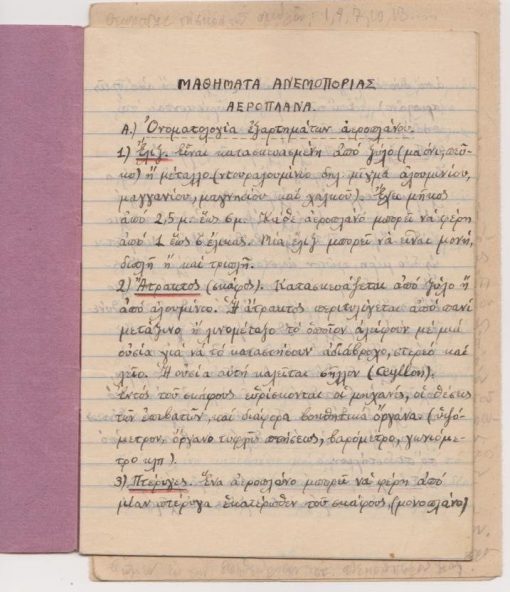 ΜΑΘΗΜΑΤΑ ΑΝΕΜΟΠΟΡΙΑΣ
ΑΕΡΟΠΛΑΝΑ.
Α.) Ὀνοματολογία ἐξαρτημάτων ἀεροπλάνου.
1) Ἕλιξ. Εἶναι κατασκευασμένη ἀπό ξύλο (μαόνι, πεῦ-
κο) ἤ μέταλλο (ντουραλουμίνιο δηλ μῖγμα ἀλουμινίου,
μαγγανίου, μαγνησίου καί χαλκοῦ). Ἔχει μῆκος
ἀπό 2,5 μ ἕως 6 μ. Κάθε ἀεροπλάνο μπορεῖ νά φέρῃ
ἀπό 1 ἕως 6 ἕλικας. Μία ἕλιξ μπορεῖ νά εἶναι μονή,
διπλῆ ἤ καί τριπλῆ.
2) Ἄτρακτος (σκάφος). Κατασκευάζεται ἀπό ξύλο ἤ
ἀπό ἀλουμίνιο. Ἡ ἄτρακτος περιτυλίγεται ἀπό πανί
μετάξινο ἤ λινομέταξο τό ὁποῖον ἀλείφουν με μιά
οὐσία για νά τό κατασήσουν ἀδιάβροχο, στερεό καί
λεῖο. Ἡ οὐσία αὐτή καλεῖται σῆλλον (Ceyllon).
Ἐντός τοῦ σκάφους εὑρίσκονται οἱ μηχανές, οἱ θέσεις
τῶν ἐπιβατῶν καί διάφορα βοηθητικά ὄργανα. (ὑψό-
μετρον. ὄργανο τυφλῆς πτήσεως, βαρόμετρο, γωνιόμε-
τρο κλπ).
3) Πτέρυγες. Ἕνα ἀεροπλάνο μπορεῖ νά φέρῃ ἀπό
μίαν πτέρυγα ἑκατέρωθεν τοῦ σκάφους (μονοπλάνο)